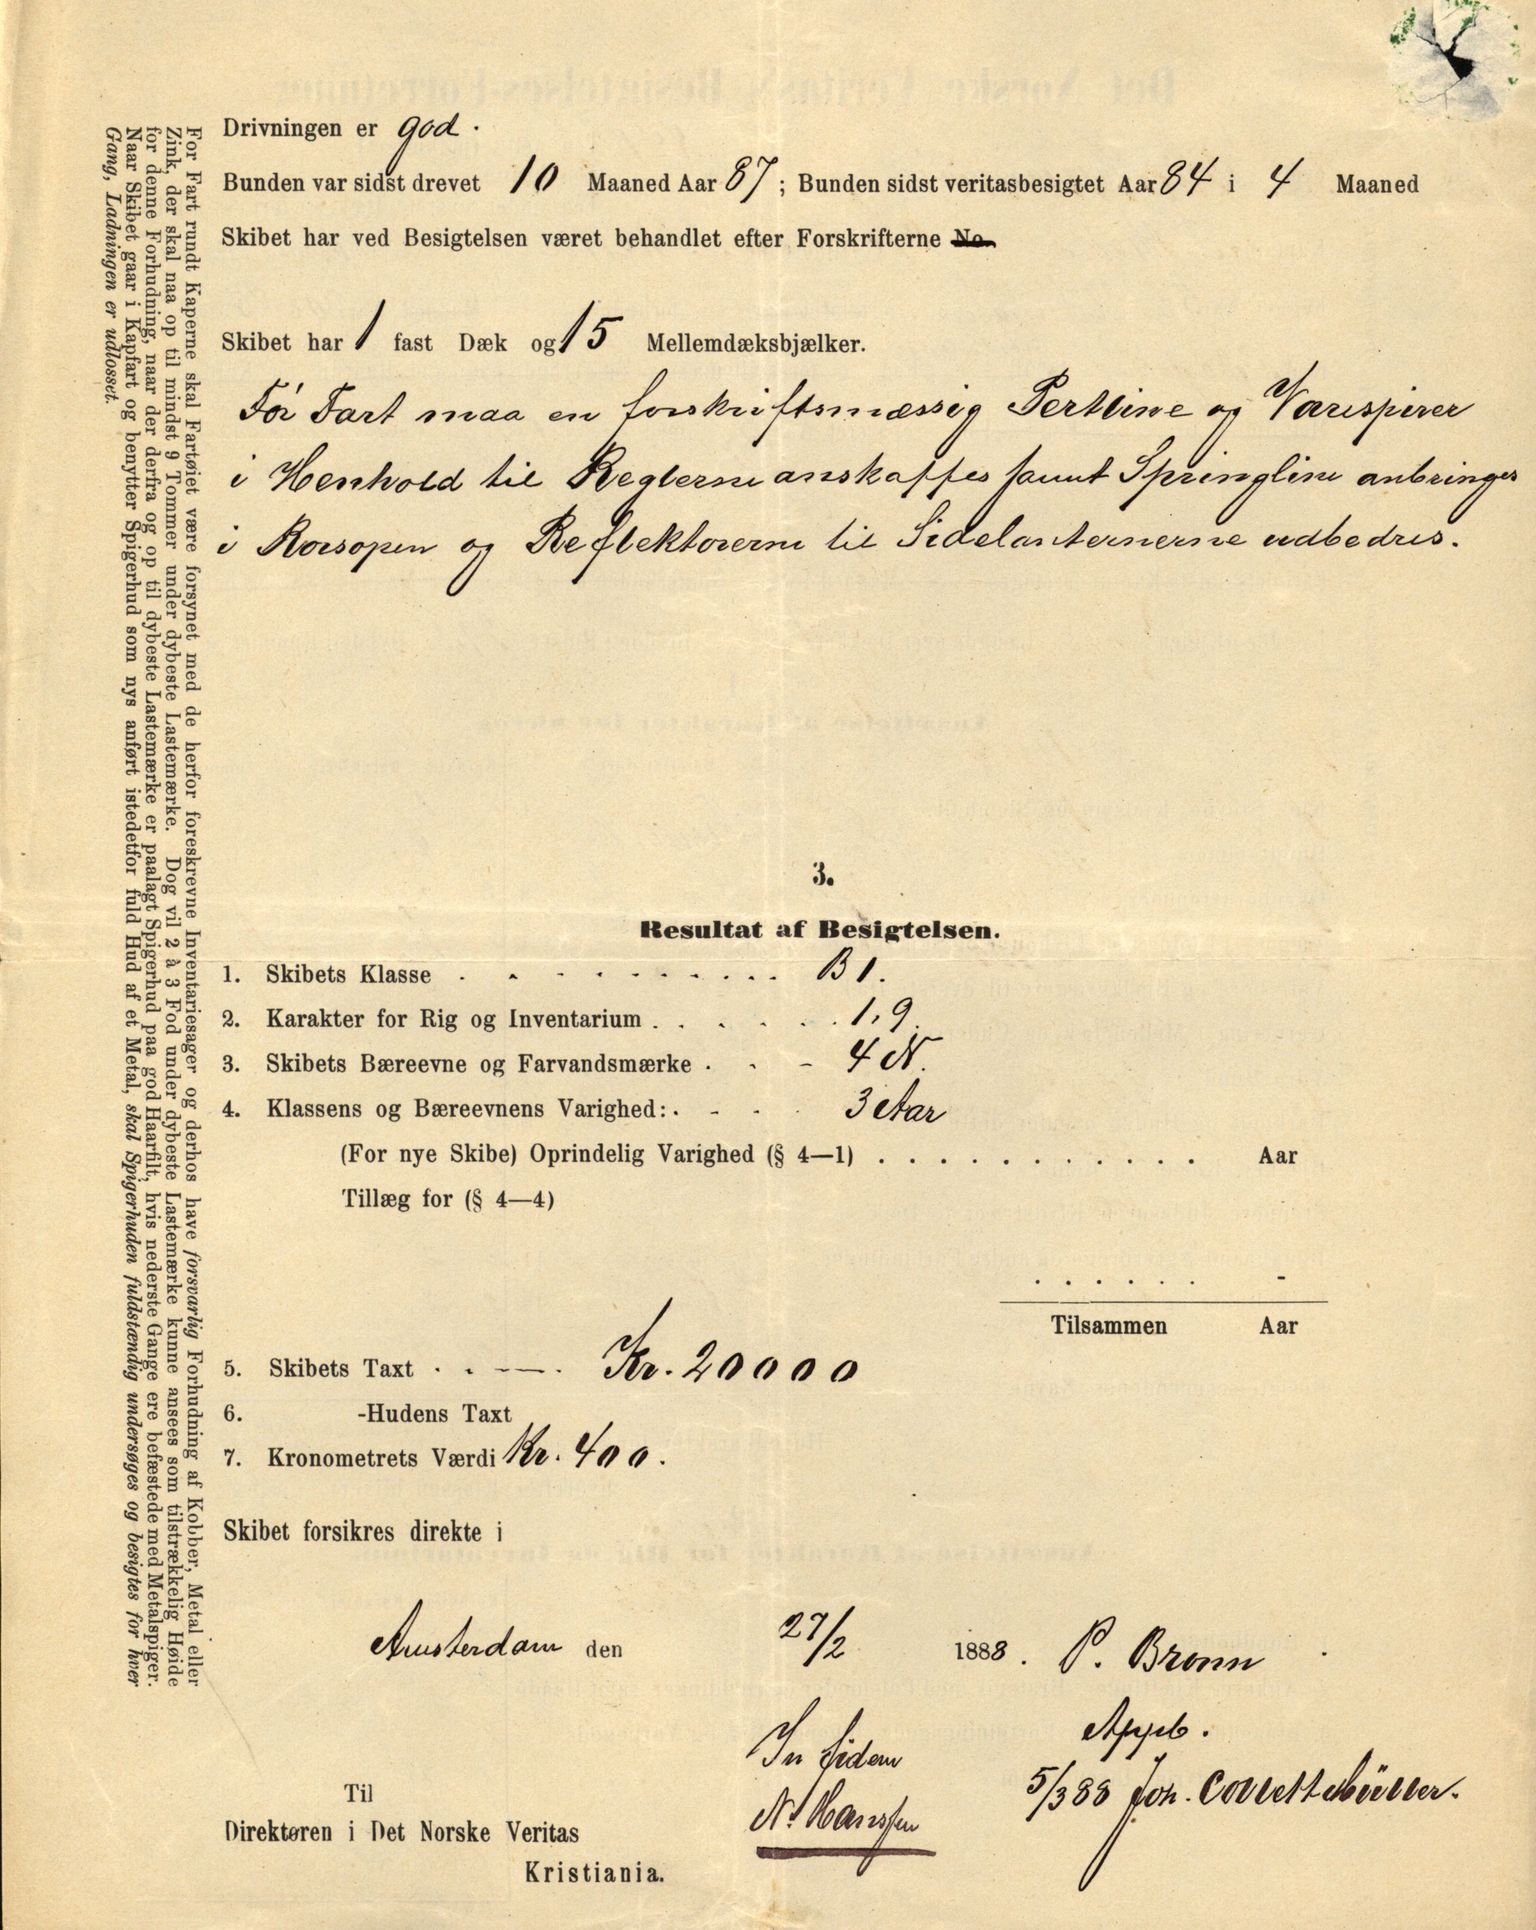 Drivningen er god.
Bunden var sidst drevet 10 Maaned Aar 87; Bunden sidst veritasbesigtet Aar 84 i 4 Maaned
Skibet har ved Besigtelsen været behandlet efter Forskrifterne No.
Skibet har 1 fast Dæk og 15 Mellemdæksbjælker.
Før Fart maa en forskriftsmæssig Pertline og Varispirer
i Henhold til Reglerne anskaffes samt Springline anbringes
i Rorsopen og Reflektorerne til Sidelanternerne udbedres.
3.
Resultat af Besigtelsen.
1. Skibets Klasse . . . . . . . . . . B 1.
2. Karakter for Rig og Inventarium . . . . . . 1,9.
3. Skibets Bæreevne og Farvandsmærke . . - 4 N.
4. Klassens og Bæreevnens Varighed: . - . . 3 Aar
(For nye Skibe) Oprindelig Varighed (§ 4—1) . . . . . . . . . . . . Aar
Tillæg for (§ 4—4)
. . . . . . -
Tilsammen Aar
5. Skibets Taxt . . —. Kr. 20000
6. -Hudens Taxt
7. Kronometrets Værdi Kr. 400.
Skibet forsikres direkte i
Amsterdam den 27/2 1888. P. Bronn
In fidem
N. Hanssen
Appb.
5/3 88 Joh. Collett Müller.
Til
Direktøren i Det Norske Veritas
Kristiania.
For Fart rundt Kaperne skal Fartøiet være forsynet med de herfor foreskrevne Inventariesager og derhos have forsvarlig Forhudning af Kobber, Metal eller
Zink, der skal naa op til mindst 9 Tommer under dybeste Lastemærke. Dog vil 2 à 3 Fod under dybeste Lastemærke kunne ansees som tilstrækkelig Høide
for denne Forhudning, naar der derfra og op til dybeste Lastemærke er paalagt Spigerhud paa god Haarfilt, hvis nederste Gange ere befæstede med Metalspiger.
Naar Skibet gaar i Kapfart og benytter Spigerhud som nys anført istedetfor fuld Hud af et Metal, skal Spigerhuden fuldstændig undersøges og besigtes for hver
Gang, Ladningen er udlosset.